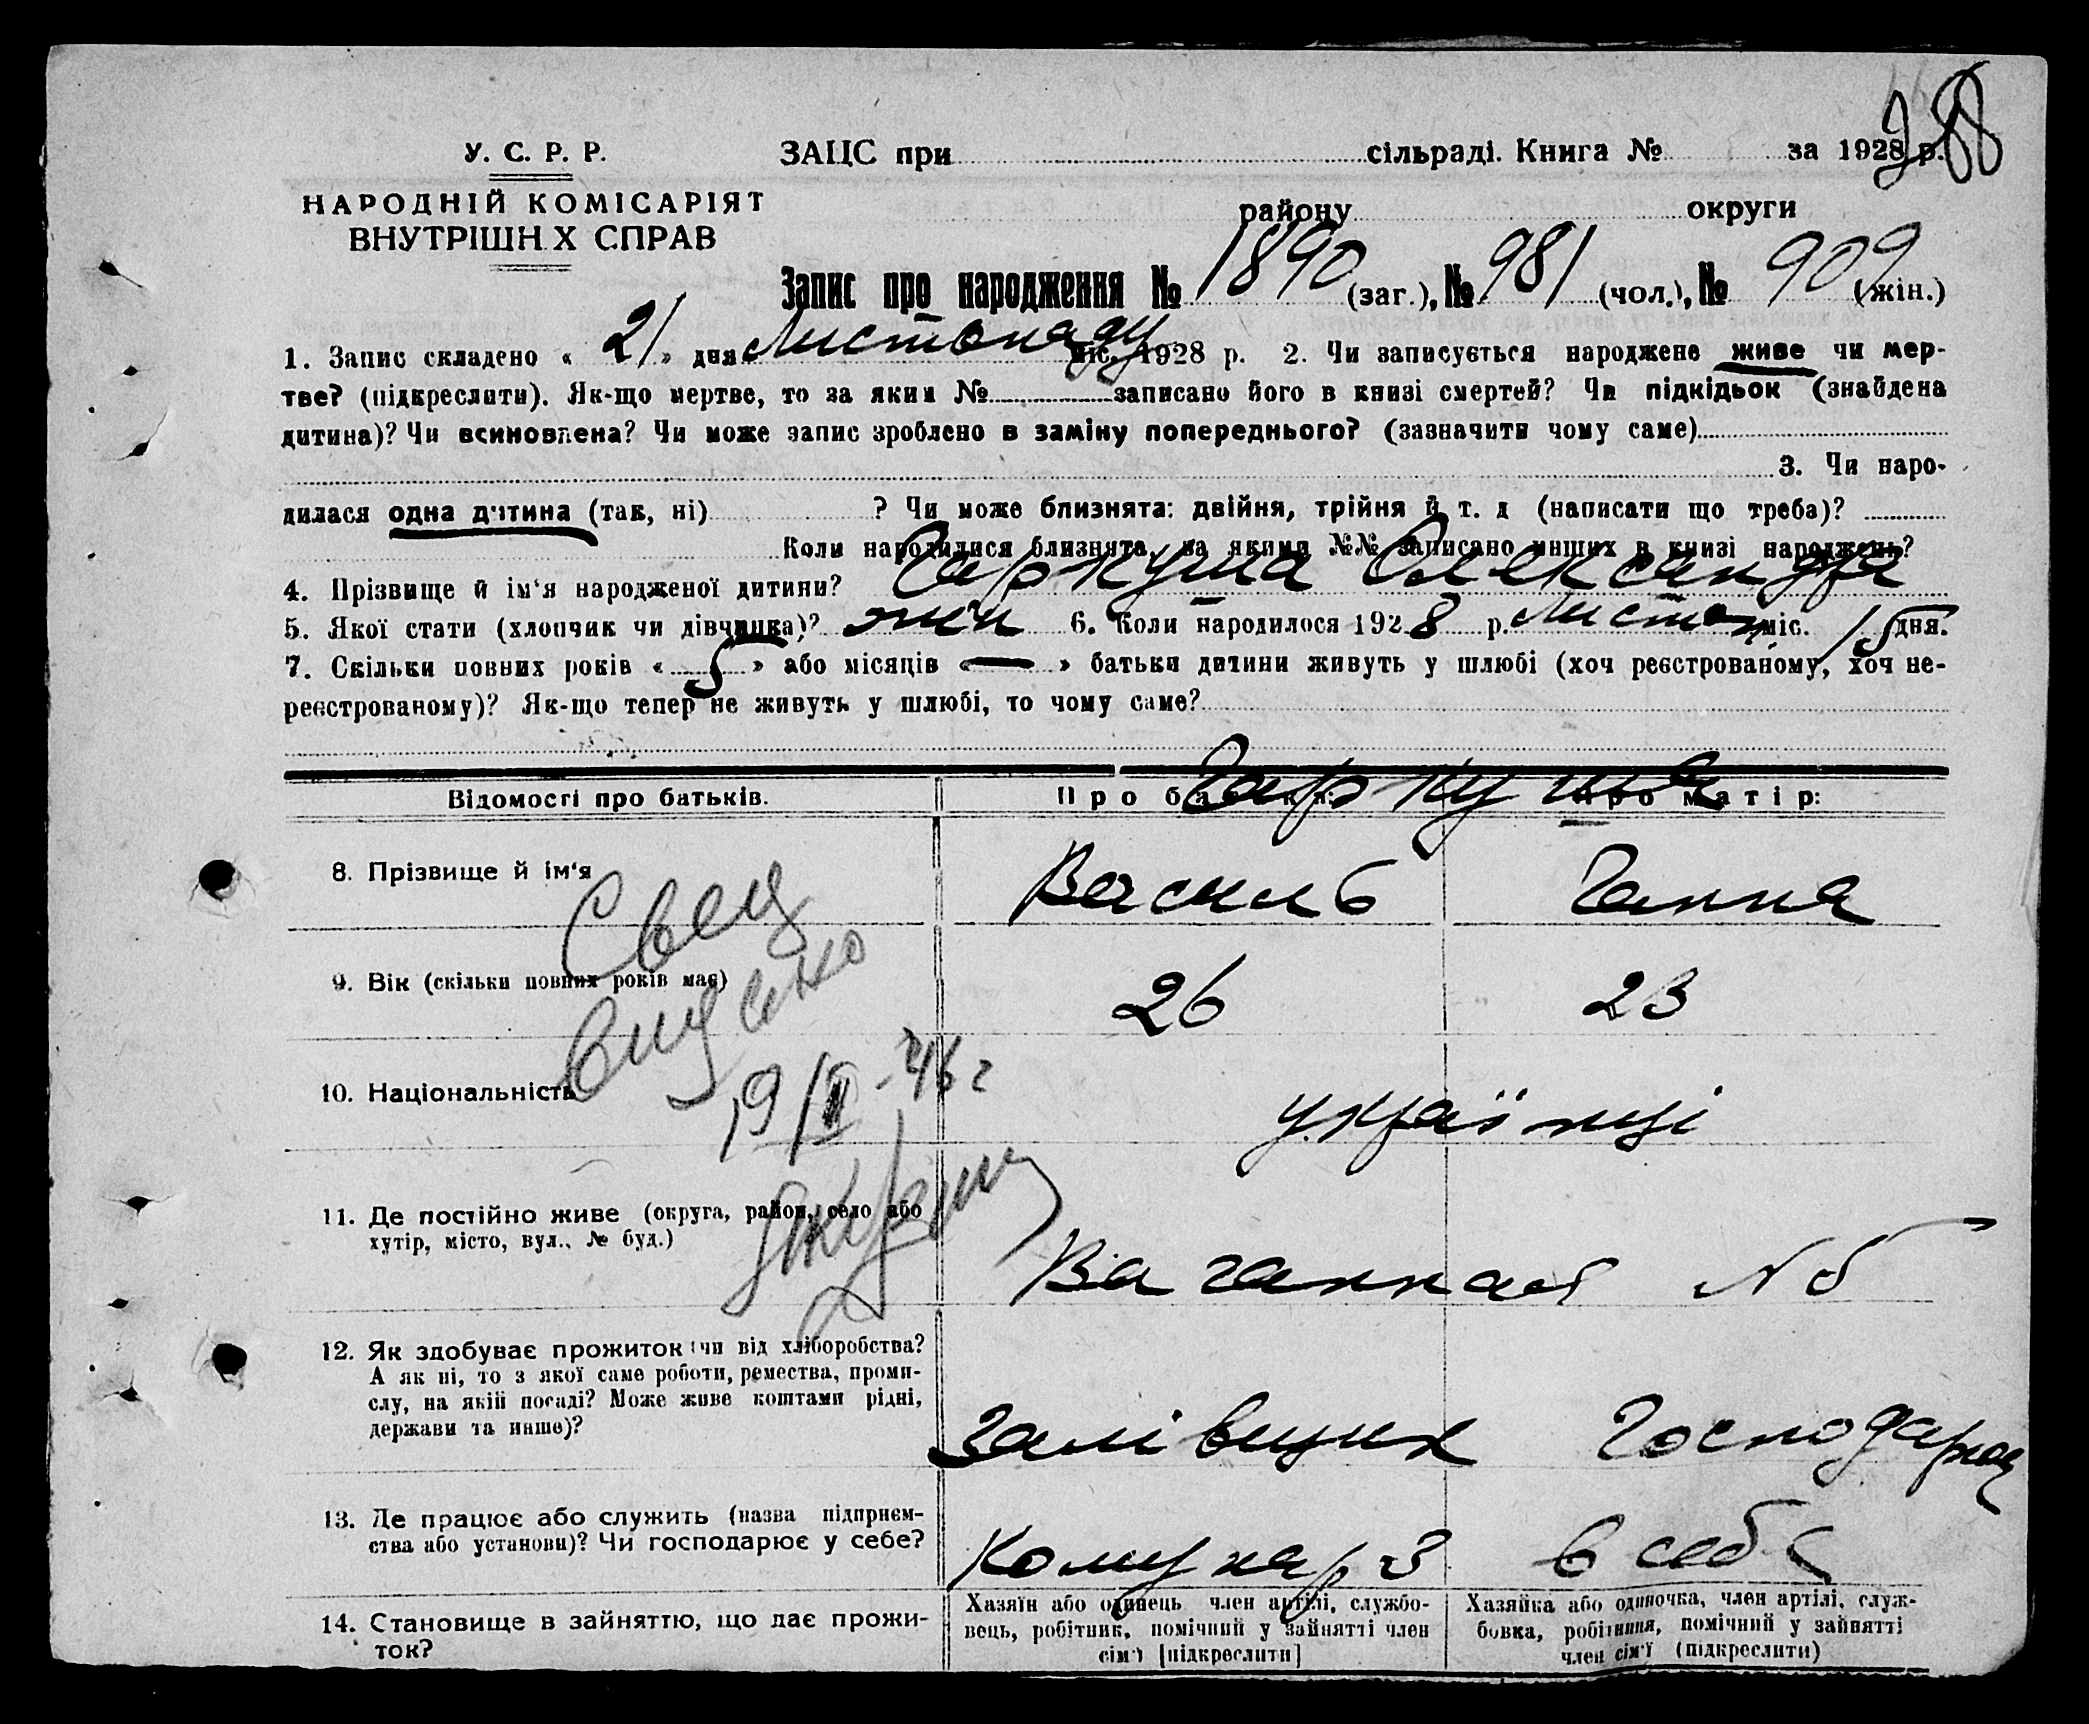 288
У. С. Р. Р.
ЗАЦС при сільраді. Книга № за 1928 р.
НАРОДНІЙ КОМІСАРІЯТ
ВНУТРІШН Х СПРАВ
району округи
Запис про народження № 1890 (заг.), № 981 (чол.), № 909 (жін.)
1. Запис складено « 21 » дня Листопаду міс. 1928 р. 2. Чи записується народжене живе чи мер-
тве? (підкреслити). Як-що мертве, то за яким № записано його в книзі смертей? Чи підкідьок (знайдена
дитина)? Чи всиновлена? Чи може запис зроблено в заміну попереднього? (зазначити чому саме)
3. Чи наро-
дилася одна дитина (так, ні) ? Чи може близнята: двійня, трійня й т. д (написати що треба)?
Коли народилися близнята, за якими №№ записано инших в книзі народжень?
4. Прізвище й ім'я народженої дитини? Гаркуша Олександра
5. Якої стати (хлопчик чи дівчинка)? жін 6. Коли народилося 1928 р. Листоп міс. 15 дня.
7. Скільки повних років « 5 » або місяців « — » батьки дитини живуть у шлюбі (хоч реєстрованому, хоч не-
реєстрованому)? Як-що тепер не живуть у шлюбі, то чому саме?
Відомості про батьків. Про батька: Про матір:
Гаркуша
8. Прізвище й ім'я Василь Ганна
9. Вік (скільки повних років має) 26 23
10. Національність українці
Свед
19/II-46 г
11. Де постійно живе (округа, район, село або
хутір, місто, вул., № буд.)
12. Як здобуває прожиток (чи від хліборобства?
А як ні, то з якої саме роботи, ремества, проми-
слу, на якій посаді? Може живе коштами рідні,
держави та инше)?
Господарка
13. Де працює або служить (назва підприєм-
ства або установи)? Чи господарює у себе?
Комунар З в себе
14. Становище в зайняттю, що дає прожи-
ток?
Хазяїн або одинець член артілі, службо-
вець, робітник, помічний у зайнятті член
сім'ї [підкреслити]
Хазяйка або одиночка, член артілі, служ-
бовка, робітниця, помічний у зайнятті
член сім'ї (підкреслити)